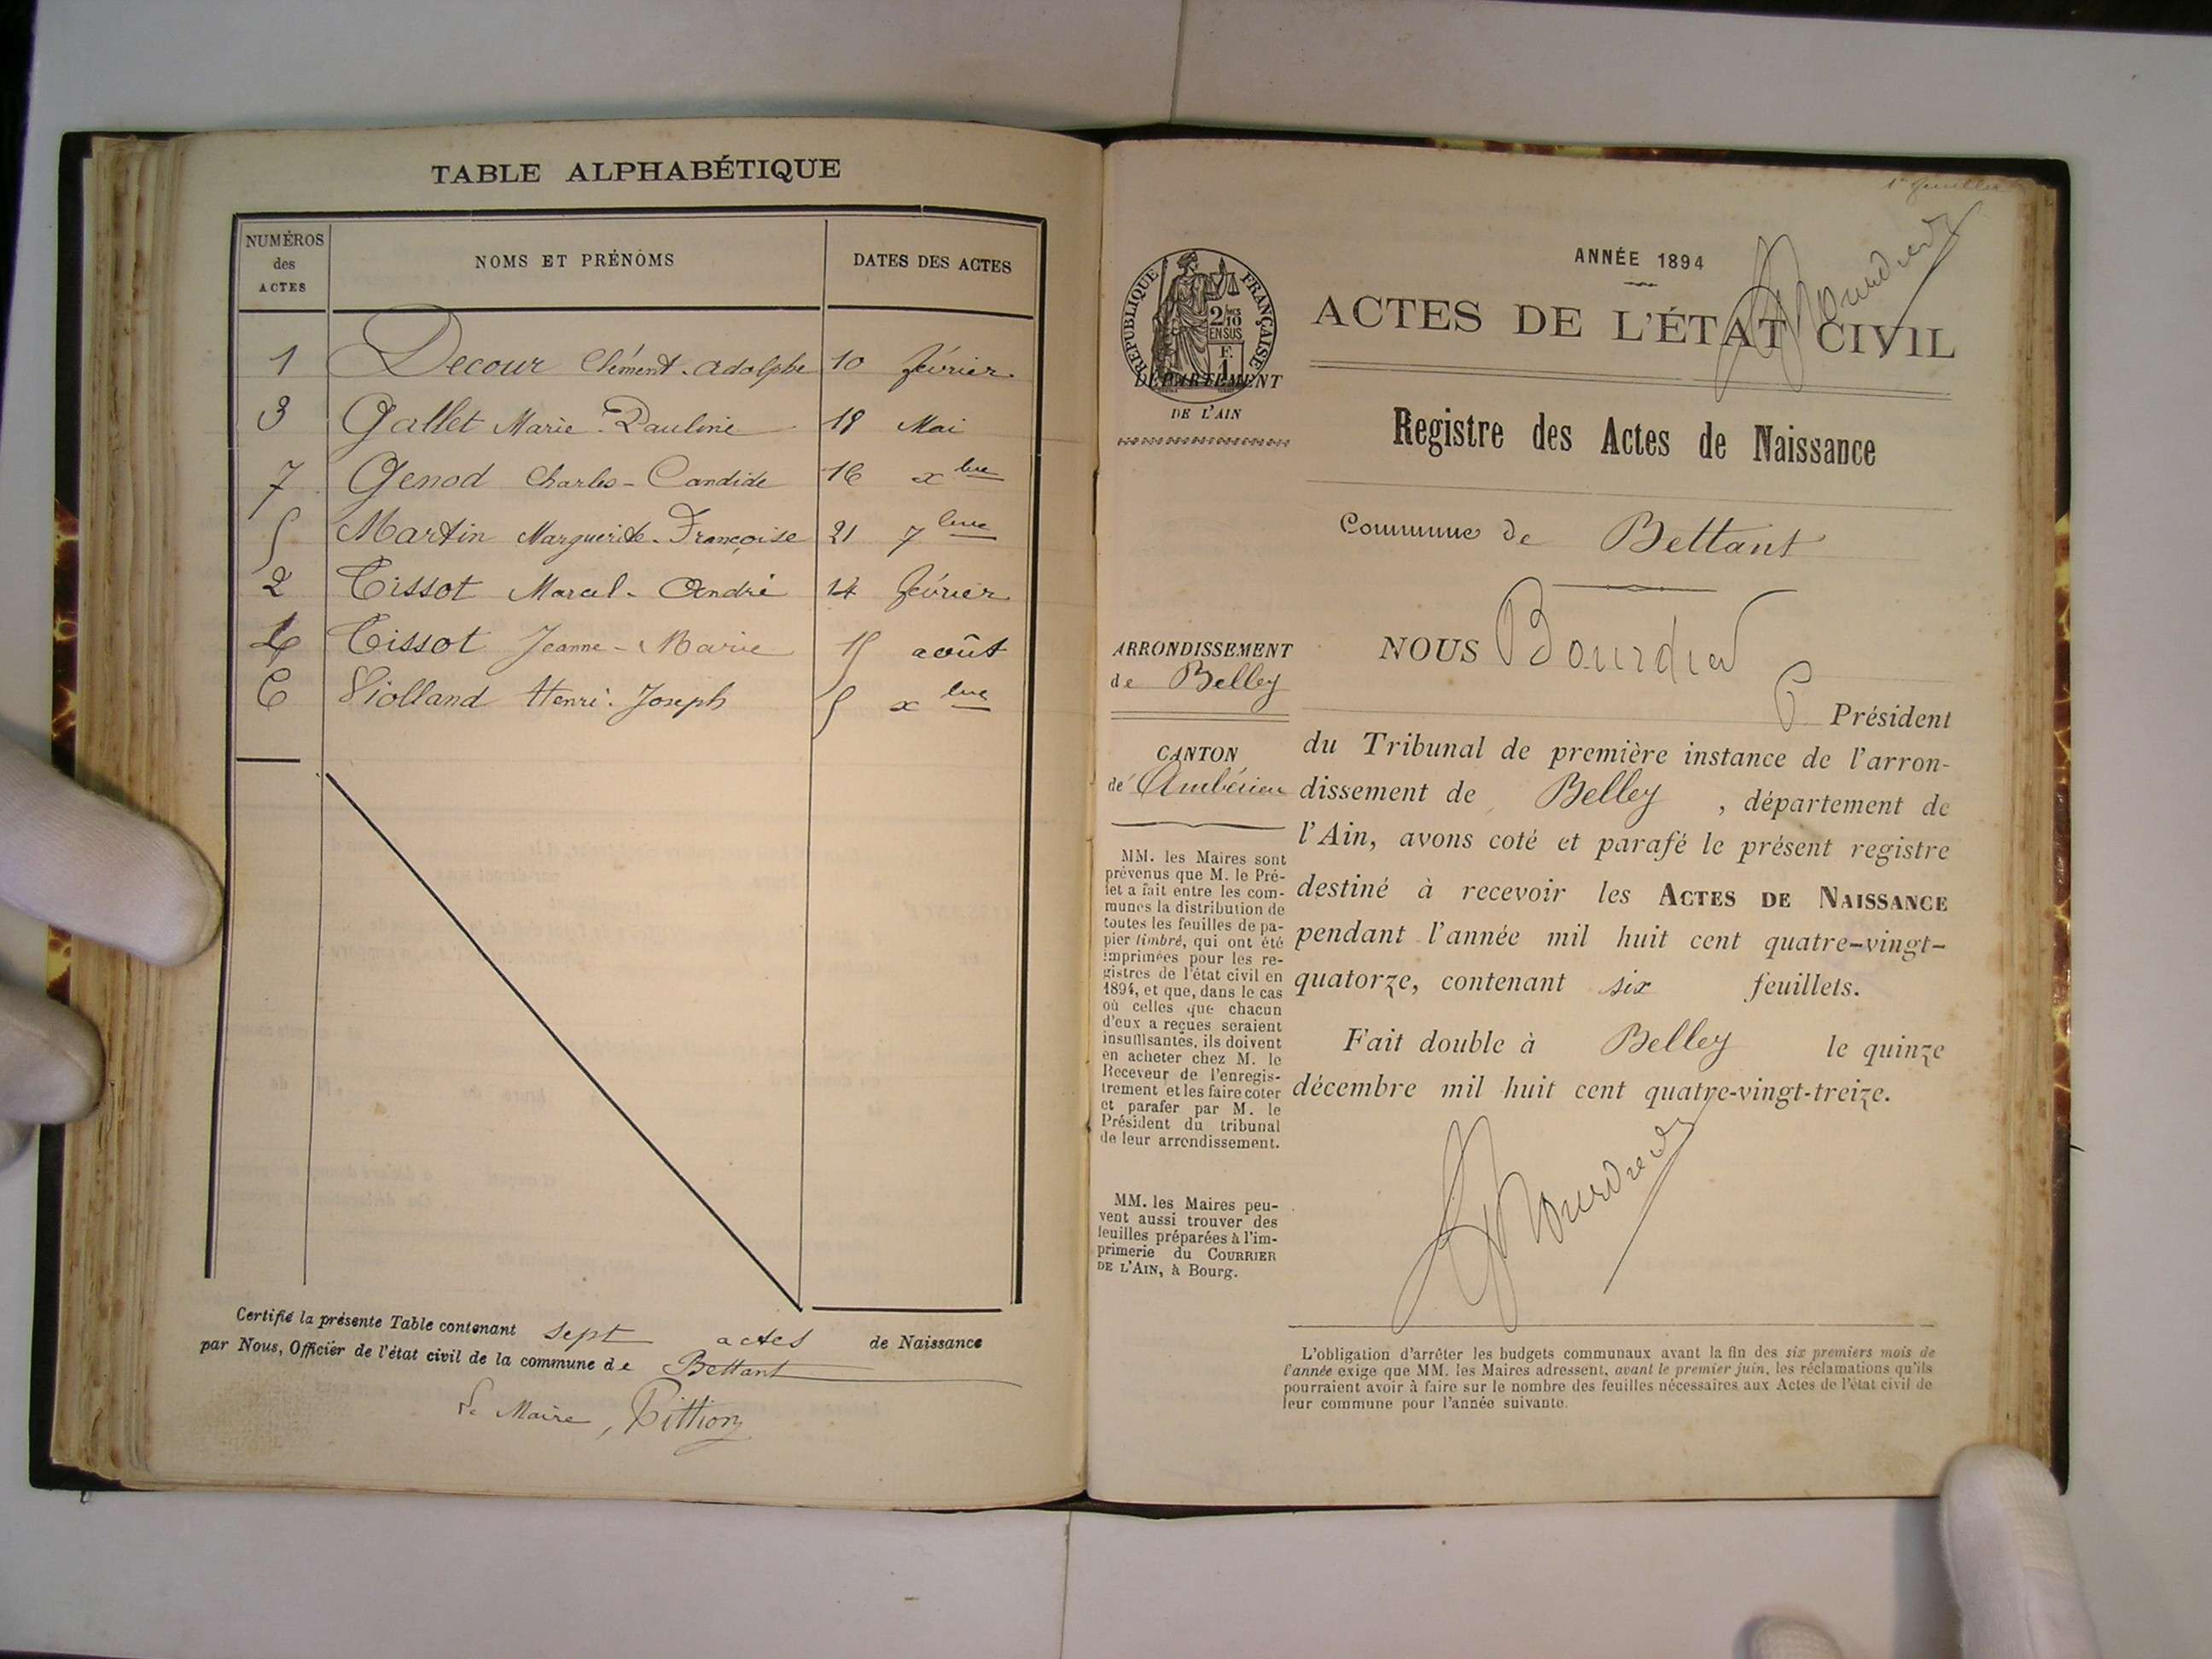 TABLE ALPHABÉTIQUE
NUMÉROS des ACTES NOMS ET PRÉNOMS DATES DES ACTES
1 Decour Clément-Adolphe 10 février
3 Gallet Marie-Pauline 18 Mai
7 Genod Charles-Candide 16 xbre
5 Martin Marguerite-Françoise 21 7bre
2 Tissot Marcel-André 14 février
4 Tissot Jeanne-Marie 15 août
6 Violland Henri-Joseph 5 xbre
Certifié la présente Table contenant sept actes de Naissance
par Nous, Officier de l'état civil de la commune de Bettant
Le Maire, Pittion
ANNÉE 1894
ACTES DE L'ÉTAT CIVIL
RÉPUBLIQUE FRANÇAISE
2/10 EN SUS
F. 1
DÉPARTEMENT
DE L'AIN
Registre des Actes de Naissance
Commune de Bettant
ARRONDISSEMENT
de Belley
CANTON
de Ambérieu
MM. les Maires sont
prévenus que M. le Pré-
fet a fait entre les com-
munes la distribution de
toutes les feuilles de pa-
pier timbré, qui ont été
imprimées pour les re-
gistres de l'état civil en
1894, et que, dans le cas
où celles que chacun
d'eux a reçues seraient
insuffisantes, ils doivent
en acheter chez M. le
Receveur de l'enregis-
trement et les faire coter
et parafer par M. le
Président du tribunal
de leur arrondissement.
MM. les Maires peu-
vent aussi trouver des
feuilles préparées à l'im-
primerie du COURRIER
DE L'AIN, à Bourg.
NOUS
Président
du Tribunal de première instance de l'arron-
dissement de Belley, département de
l'Ain, avons coté et parafé le présent registre
destiné à recevoir les ACTES DE NAISSANCE
pendant l'année mil huit cent quatre-vingt-
quatorze, contenant six feuillets.
Fait double à Belley le quinze
décembre mil huit cent quatre-vingt-treize.
L'obligation d'arrêter les budgets communaux avant la fin des six premiers mois de
l'année exige que MM. les Maires adressent, avant le premier juin, les réclamations qu'ils
pourraient avoir à faire sur le nombre des feuilles nécessaires aux Actes de l'état civil de
leur commune pour l'année suivante.